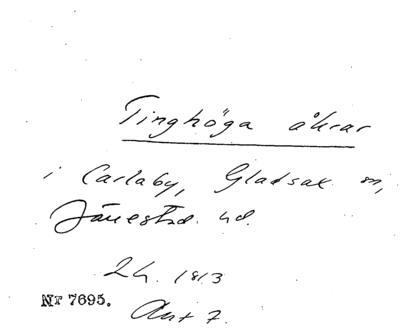 Tinghöga åkrar
i Carlaby, Gladsax sn,
Järrestad hd.
Lh. 1813
Nr 7695.
Akt 7.